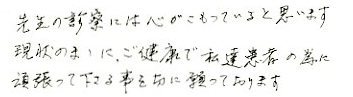 先生の診察には心がこもっていると思います
現状のまゝに、ご健康で私達患者の為に
頑張って下さる事を切に願っております